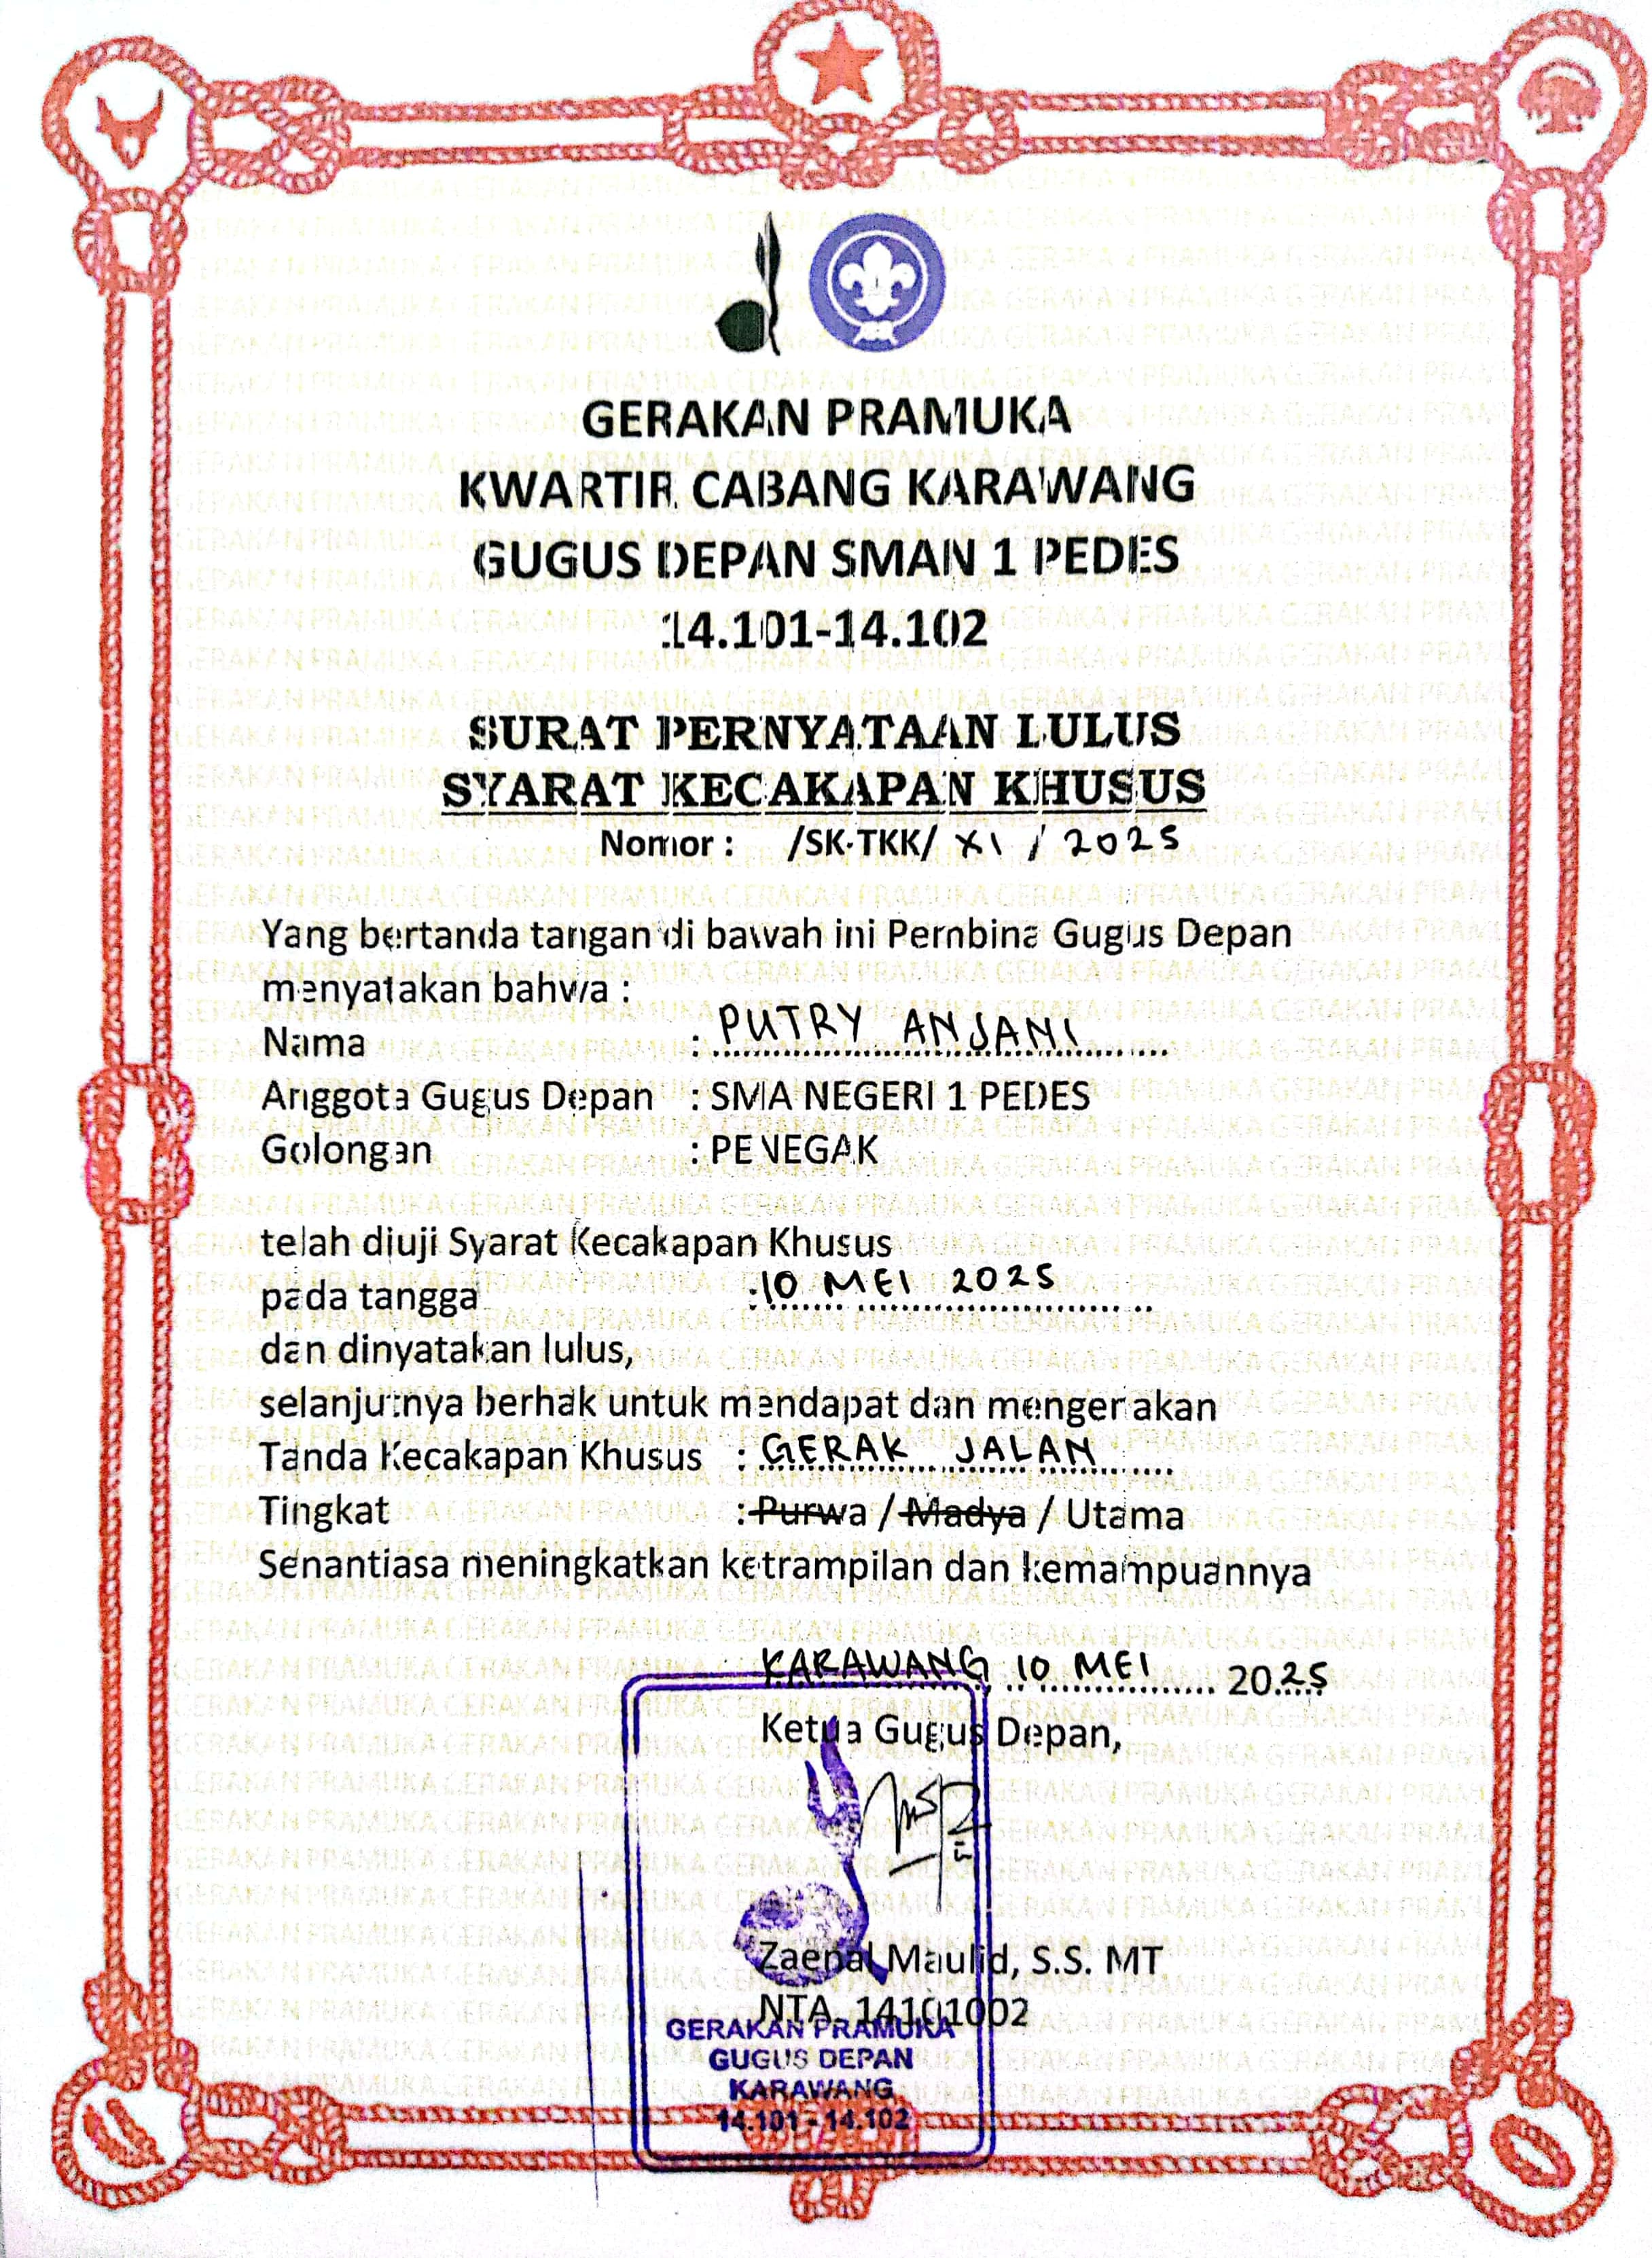 GERAKAN PRAMUKA
KWARTIR CABANG KARAWANG
GUGUS DEPAN SMAN 1 PEDES
14.101-14.102
SURAT PERNYATAAN LULUS
SYARAT KECAKAPAN KHUSUS
Nomor : /SK-TKK/ XI / 2025
Yang bertanda tangan di bawah ini Pembina Gugus Depan
menyatakan bahwa :
Nama : PUTRY ANJANI
Anggota Gugus Depan : SMA NEGERI 1 PEDES
Golongan : PENEGAK
telah diuji Syarat Kecakapan Khusus
pada tangga : 10 MEI 2025
dan dinyatakan lulus,
selanjutnya berhak untuk mendapat dan mengenakan
Tanda Kecakapan Khusus : GERAK JALAN
Tingkat : Purwa / Madya / Utama
Senantiasa meningkatkan ketrampilan dan kemampuannya
KARAWANG, 10 MEI 2025
Ketua Gugus Depan,
Zaenal Maulid, S.S. MT
NTA. 14101002
GERAKAN PRAMUKA
GUGUS DEPAN
KARAWANG
14.101 - 14.102